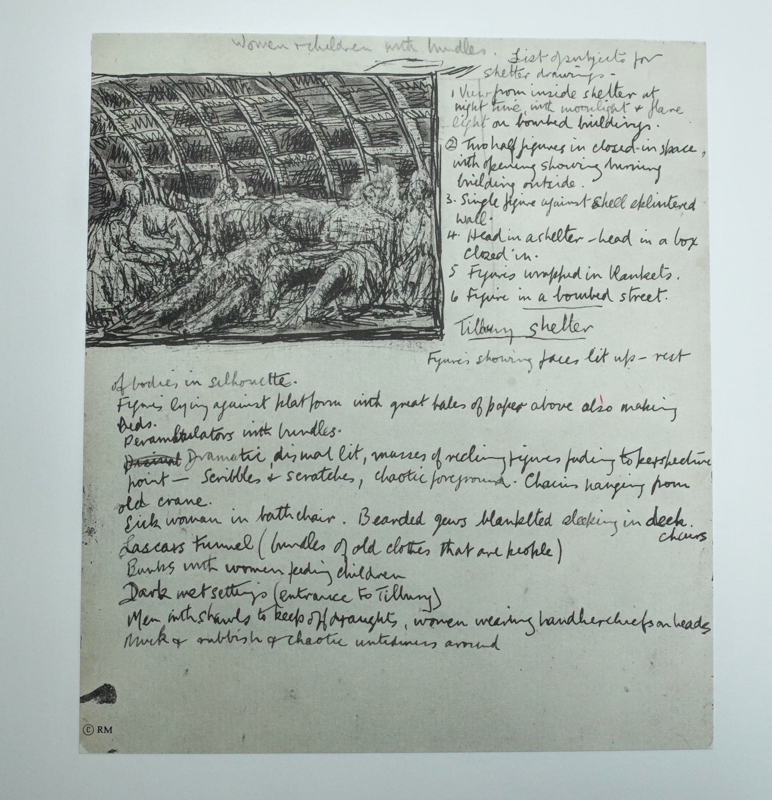 Women + children with bundles.
List of subjects for
shelter drawings -
1 View from inside shelter at
night time, with moonlight & flare
light on bombed buildings.
② Two half figures in closed-in space,
with opening showing burning
building outside.
3. Single figure against shell splintered
wall.
4. Head in a shelter - head in a box
closed in.
5 Figures wrapped in blankets.
6 Figure in a bombed street.
Tilbury shelter
Figures showing faces lit up - rest
of bodies in silhouette.
Figures lying against platform with great bales of paper above also making
beds.
Perambulators with bundles.
Dramatic, dismal lit, masses of reclining figures fading to perspective
point - Scribbles & scratches, chaotic foreground. Chains hanging from
old crane.
Sick woman in bathchair. Bearded Jews blanketed sleeping in deck
chairs
Lascars Tunnel (bundles of old clothes that are people)
Bunks with women feeding children
Dark wet settings (entrance to Tilbury)
Men with shawls to keep off draughts, women wearing handkerchiefs on heads
Muck & rubbish & chaotic untidiness around
© RM